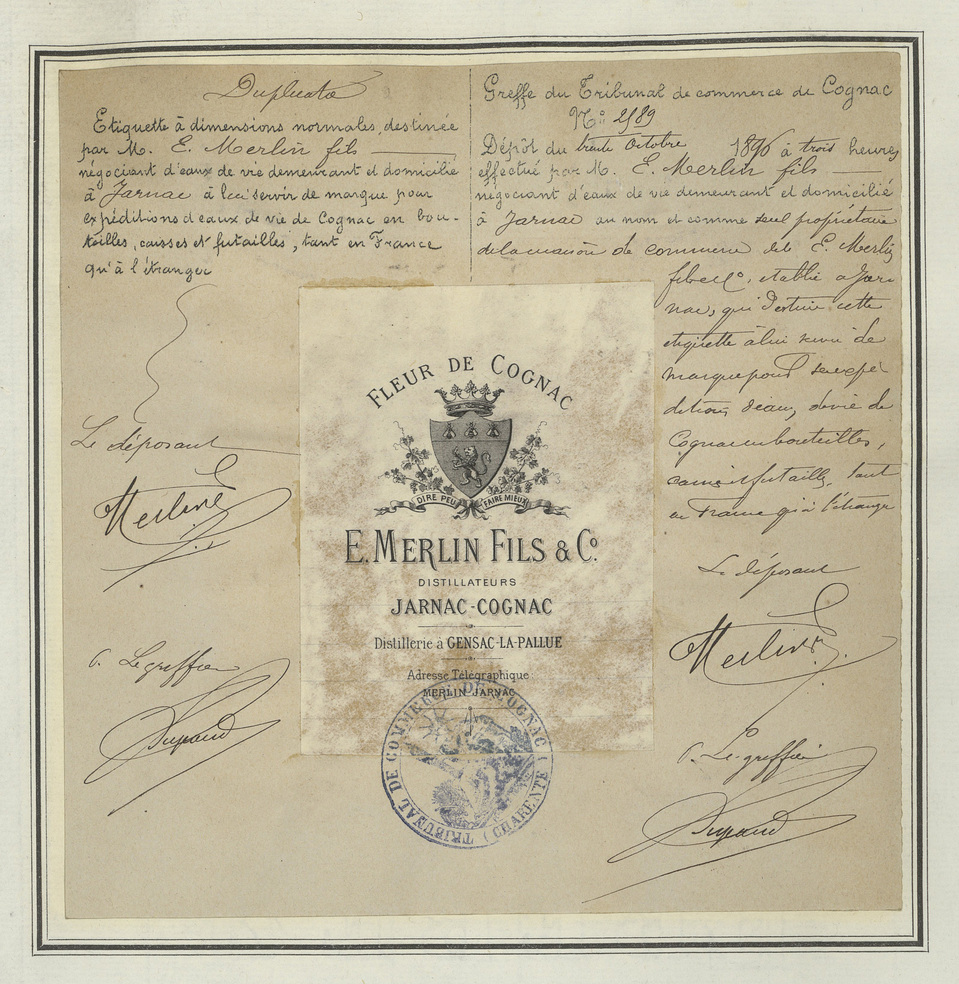 Duplicata
Etiquette à dimensions normales, destinée
par M. E. Merlin fils
négociant d'eaux de vie demeurant et domicilié
à Jarnac à lui servir de marque pour
expéditions d'eaux de vie de Cognac en bou-
teilles, caisses et futailles, tant en France
qu'à l'étranger
Le déposant
Merlin
P. Le greffier
Greffe du Tribunal de commerce de Cognac
N° 2189
Dépôt du trente Octobre 1896 à trois heures
effectué par M. E. Merlin fils
négociant d'eaux de vie demeurant et domicilié
à Jarnac au nom et comme seul propriétaire
de la maison de commerce de E. Merlin
fils et Cº, établie à Jar
nac, qui destine cette
etiquette à lui servir de
marque pour ses expé
ditions d'eaux de vie de
Cognac en bouteilles,
caisses et futailles, tant
en France qu'à l'étranger
Le déposant
Merlin
P. Le greffier
FLEUR DE COGNAC
DIRE PEU FAIRE MIEUX
E. MERLIN FILS & Cº
DISTILLATEURS
JARNAC-COGNAC
Distillerie à GENSAC-LA-PALLUE
Adresse Télégraphique:
MERLIN JARNAC
TRIBUNAL DE COMMERCE DE COGNAC
(CHARENTE)